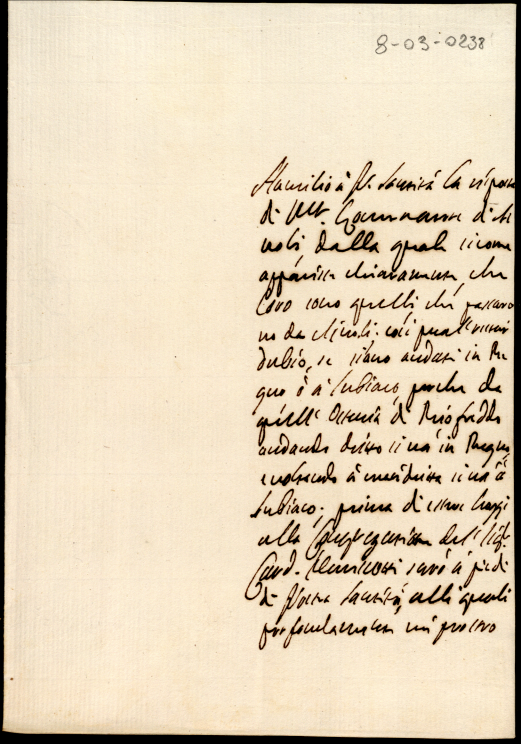 8-03-0238
Humilio à V. Santità la risposta
di Mr. Governatore di
voli dalla quale siccome
apparisce chiaramente, che
loro sono quelli che passaro
no da così
dubio, se siano andati in Re
gno ò à Subiaco, perche da
quell' Osteria di Riofreddo
andando dritto si và in Regno,
e voltando à man dritta si và à
Subiaco; prima di essere hoggi
alla Congregazione del Sig.
Card. sarò à piedi
di Vostra Santità, alli quali
profondamente mi prostro